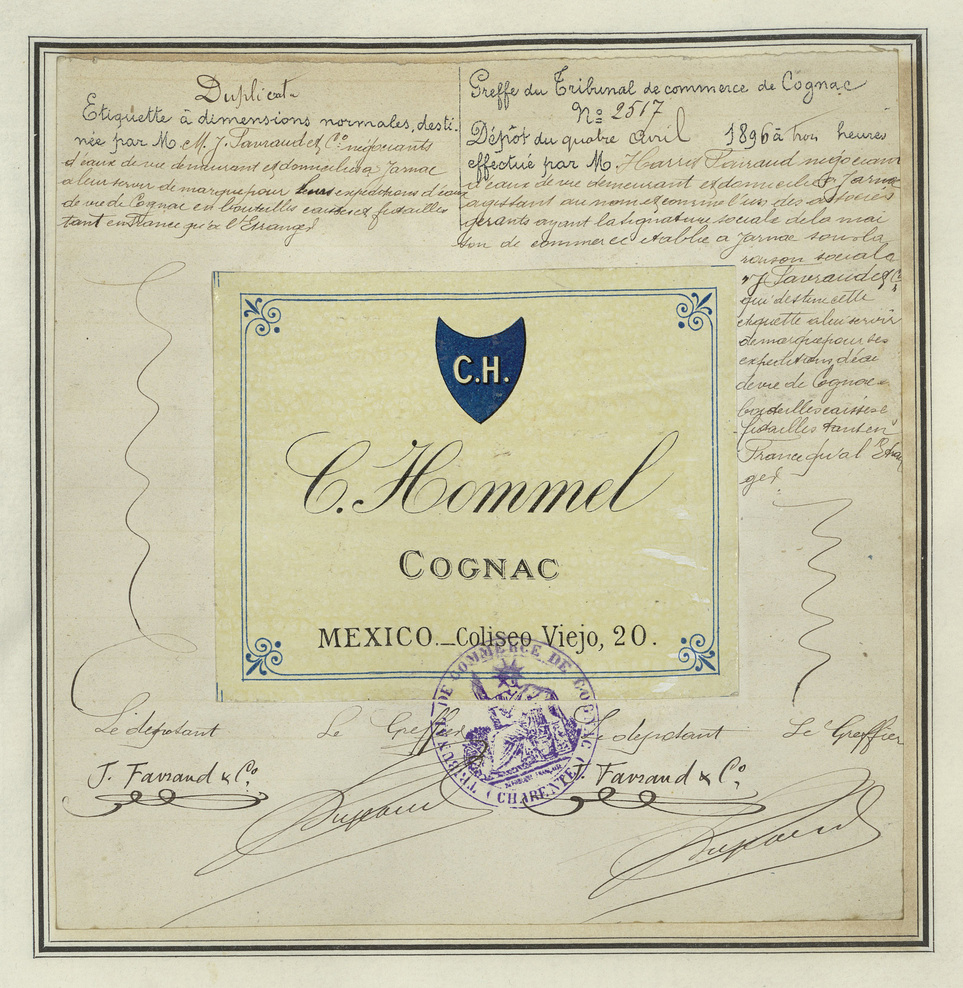 Duplicata
Etiquette à dimensions normales, desti-
née par M.M. J. Favraud et Cº négociants
d'eaux de vie demeurant et domiciliés à Jarnac
a leur servir de marque pour leurs expéditions d'eaux
de vie de Cognac en bouteilles caisses et futailles
tant en France qu'a l'Etranger
Greffe du Tribunal de commerce de Cognac
Nº 2517
Dépôt du quatre Avril 1896 à trois heures
effectué par M. Harris Favraud négociant
d'eaux de vie demeurant et domicilié à Jarnac
agissant au nom et comme l'un des associés
gérants ayant la signature sociale de la mai
son de commerce établie a Jarnac sous la
raison sociale
"J Favraud & Cº
qui destine cette
etiquette a lui servir
de marque pour ses
expéditions d'eau
de vie de Cognac
bouteilles caisses
futailles tant en
France qu'a l'Etran
ger
C.H.
C. Hommel
COGNAC
MEXICO._Coliseo Viejo, 20.
TRIBUNAL DE COMMERCE DE COGNAC
(CHARENTE)
Le déposant Le Greffier Le déposant Le Greffier
J. Favraud & Cº J. Favraud & Cº